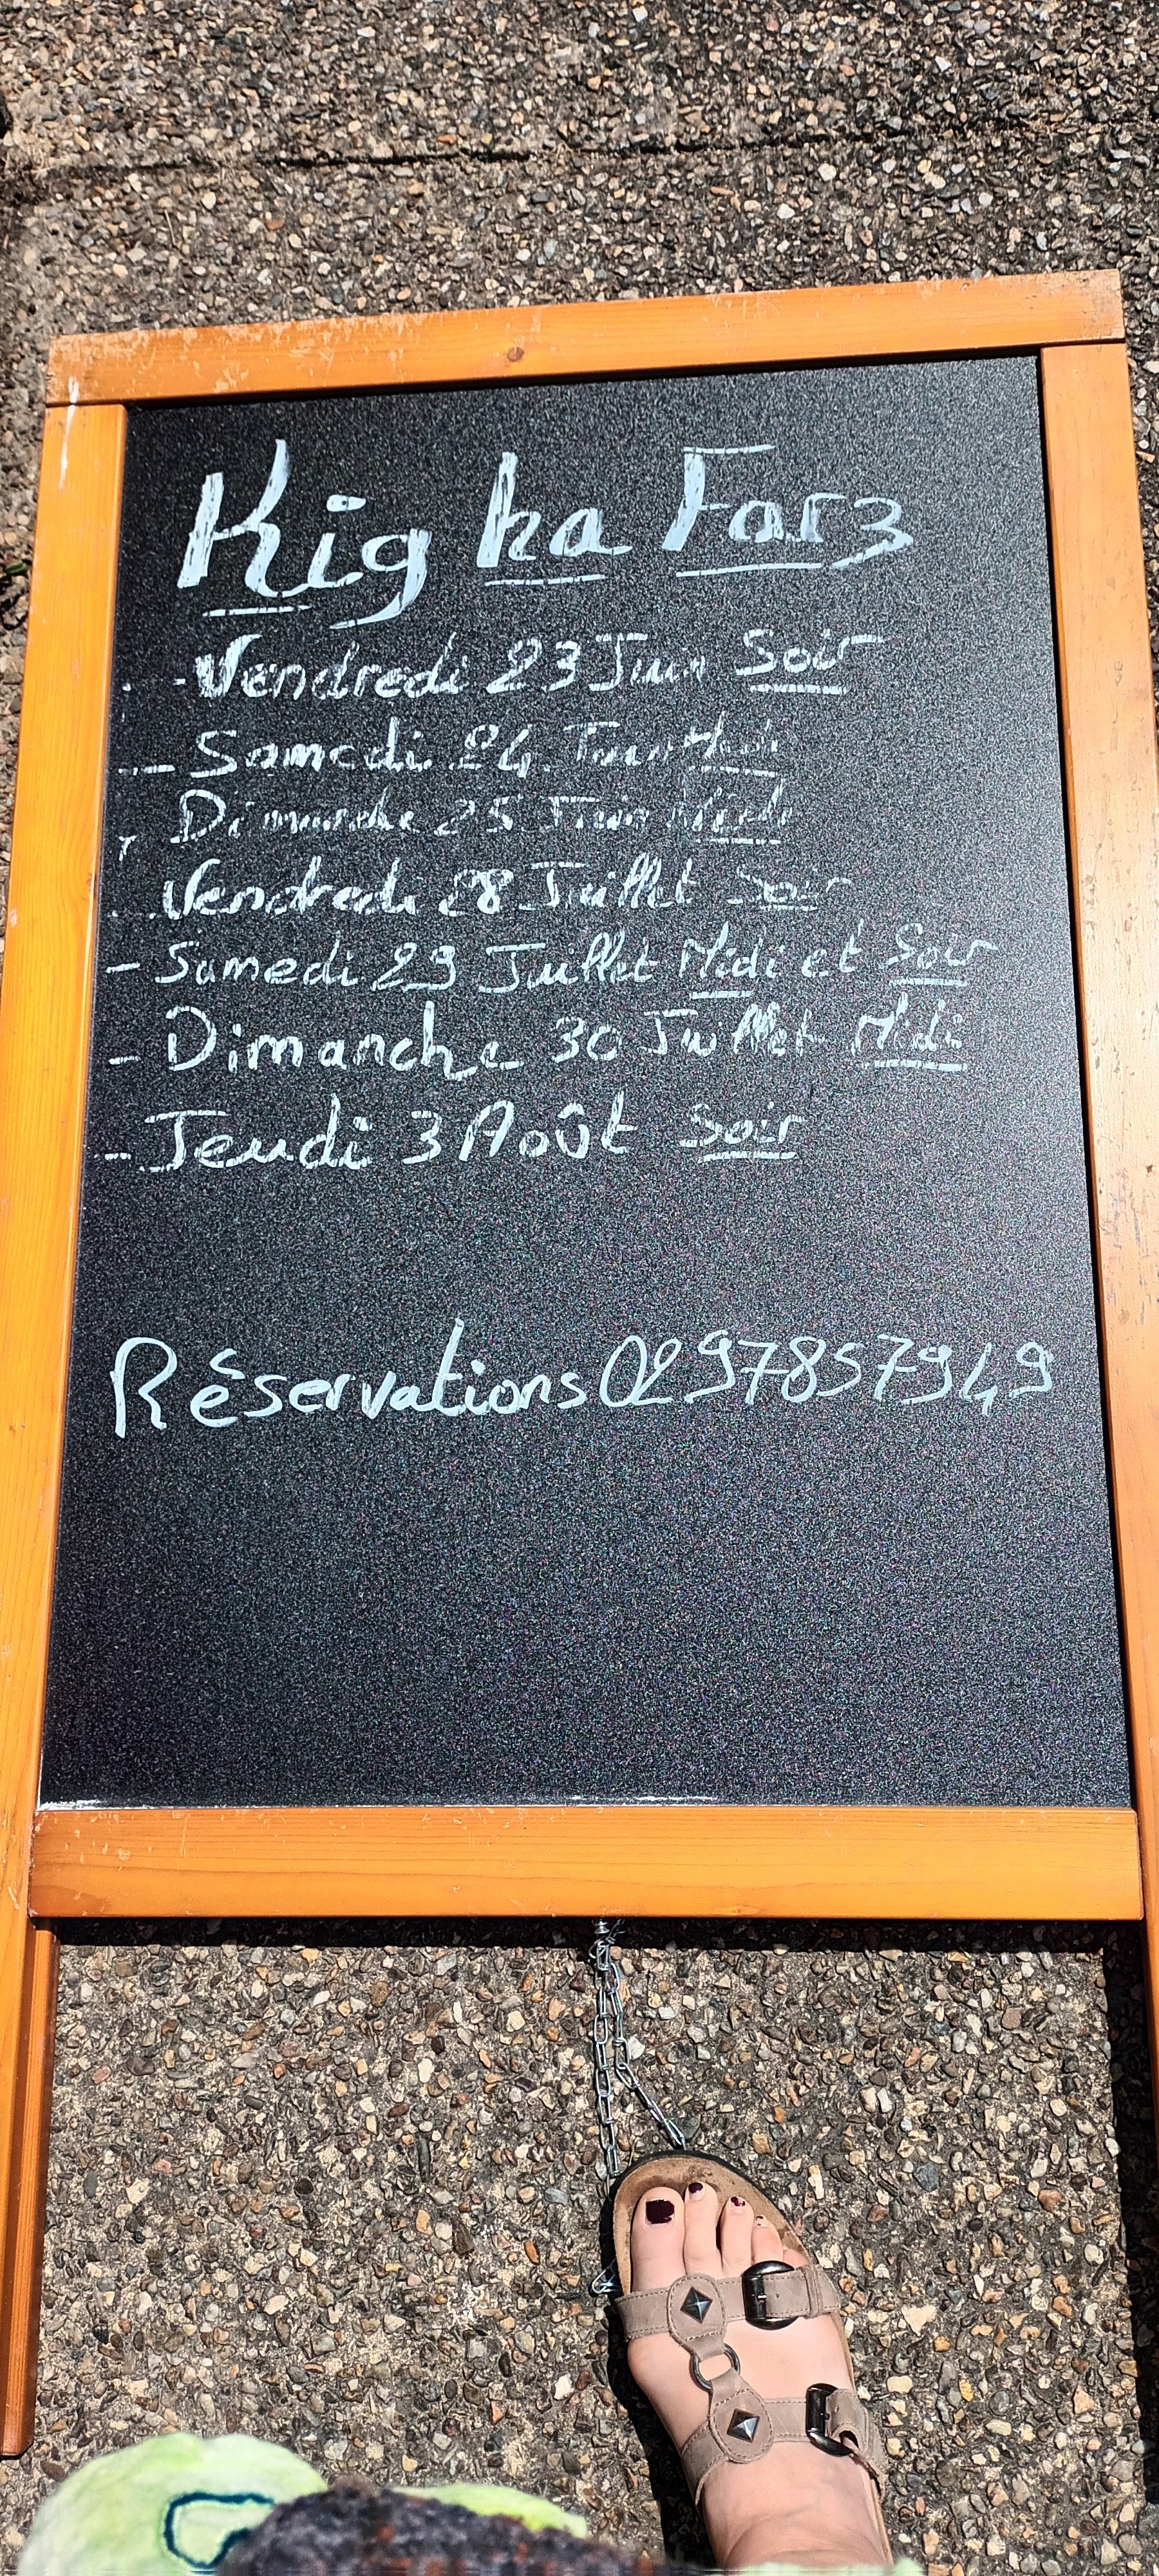 Kig ha Farz
- Vendredi 23 Juin Soir
- Samedi 24 Juin Midi
- Dimanche 25 Juin Midi
- Vendredi 28 Juillet Soir
- Samedi 29 Juillet Midi et Soir
- Dimanche 30 Juillet Midi
- Jeudi 3 Août Soir
Réservations 0297857949